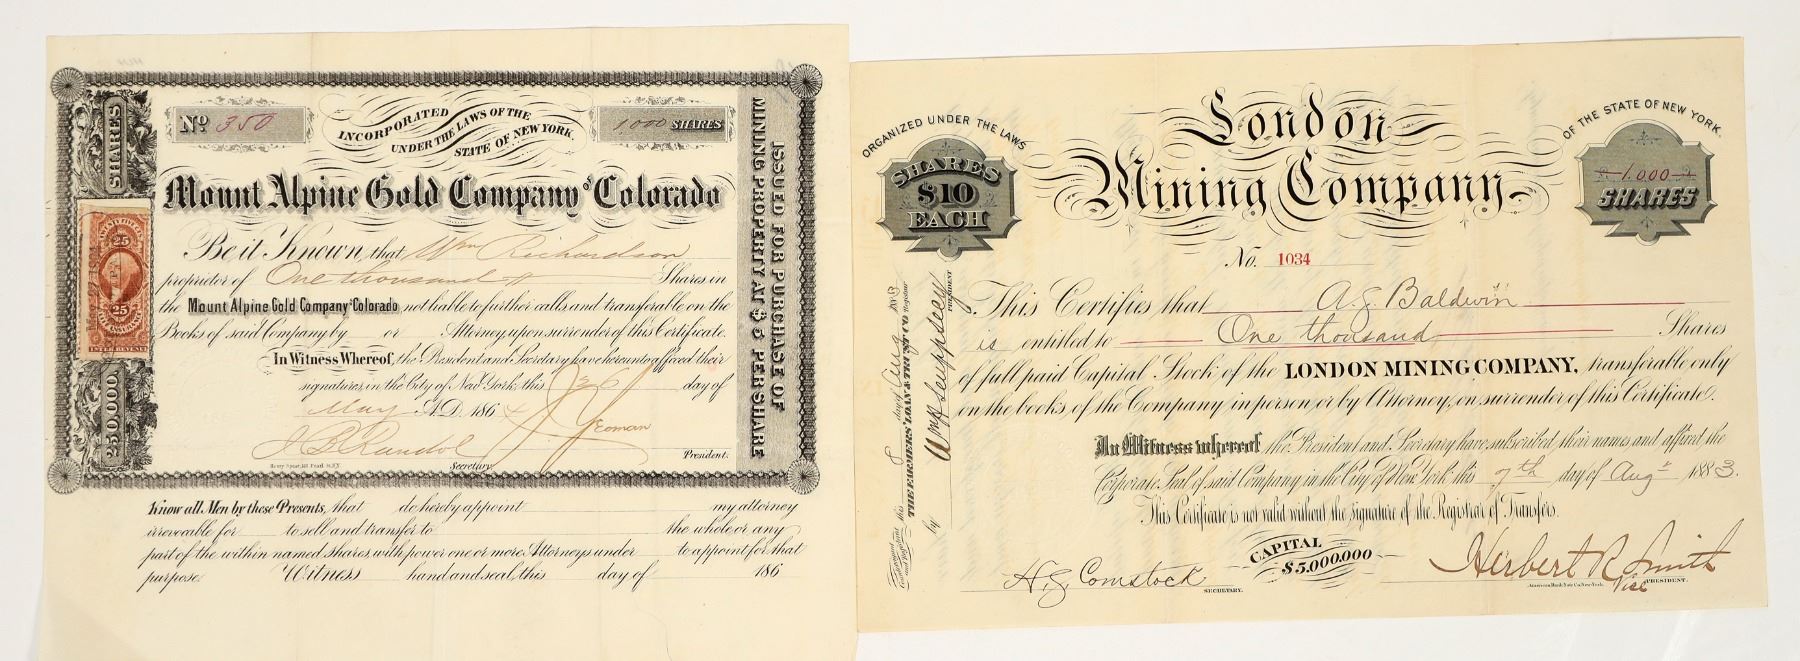 SHARES
250,000
25
25
INTER. REVENUE
No 350
INCORPORATED
UNDER THE LAWS OF THE
STATE OF NEW YORK.
1,000 SHARES
Mount Alpine Gold Company of Colorado
Be it Known, that Wm Richardson
proprietor of One thousand Shares in
the Mount Alpine Gold Company of Colorado, not liable to further calls and transferable on the
Books of said Company by or Attorney upon surrender of this Certificate.
In Witness Whereof, the President and Secretary have hereunto affixed their
signatures, in the City of New York, this 26 day of
May A.D. 1864 J. Yeoman
J B Randol
Secretary. President.
ISSUED FOR PURCHASE OF
MINING PROPERTY AT $5 PER SHARE
Know all Men by these Presents, that do hereby appoint my attorney
irrevocable for to sell and transfer to the whole or any
part of the within named shares, with power one or more Attorneys under to appoint for that
purpose. Witness hand and seal, this day of 186
ORGANIZED UNDER THE LAWS
OF THE STATE OF NEW YORK.
SHARES
$10
EACH
London
Mining Company
1.000
SHARES
No. 1034
This Certifies that A. J. Baldwin
is entitled to One thousand Shares
of full paid Capital Stock of the LONDON MINING COMPANY, transferable only
on the books of the Company in person or by Attorney, on surrender of this Certificate.
In Witness whereof the President and Secretary have subscribed their names and affixed the
Corporate Seal of said Company in the City of New York this 7th day of Augt 1883.
This Certificate is not valid without the signature of the Registrar of Transfers.
CAPITAL
$5,000,000
H. J. Comstock
SECRETARY.
Herbert R. Smith
Vice PRESIDENT.
American Bank Note Co. New York.
this 8 day of Aug 1883
THE FARMERS' LOAN & TRUST CO. Registrar
by PRESIDENT.